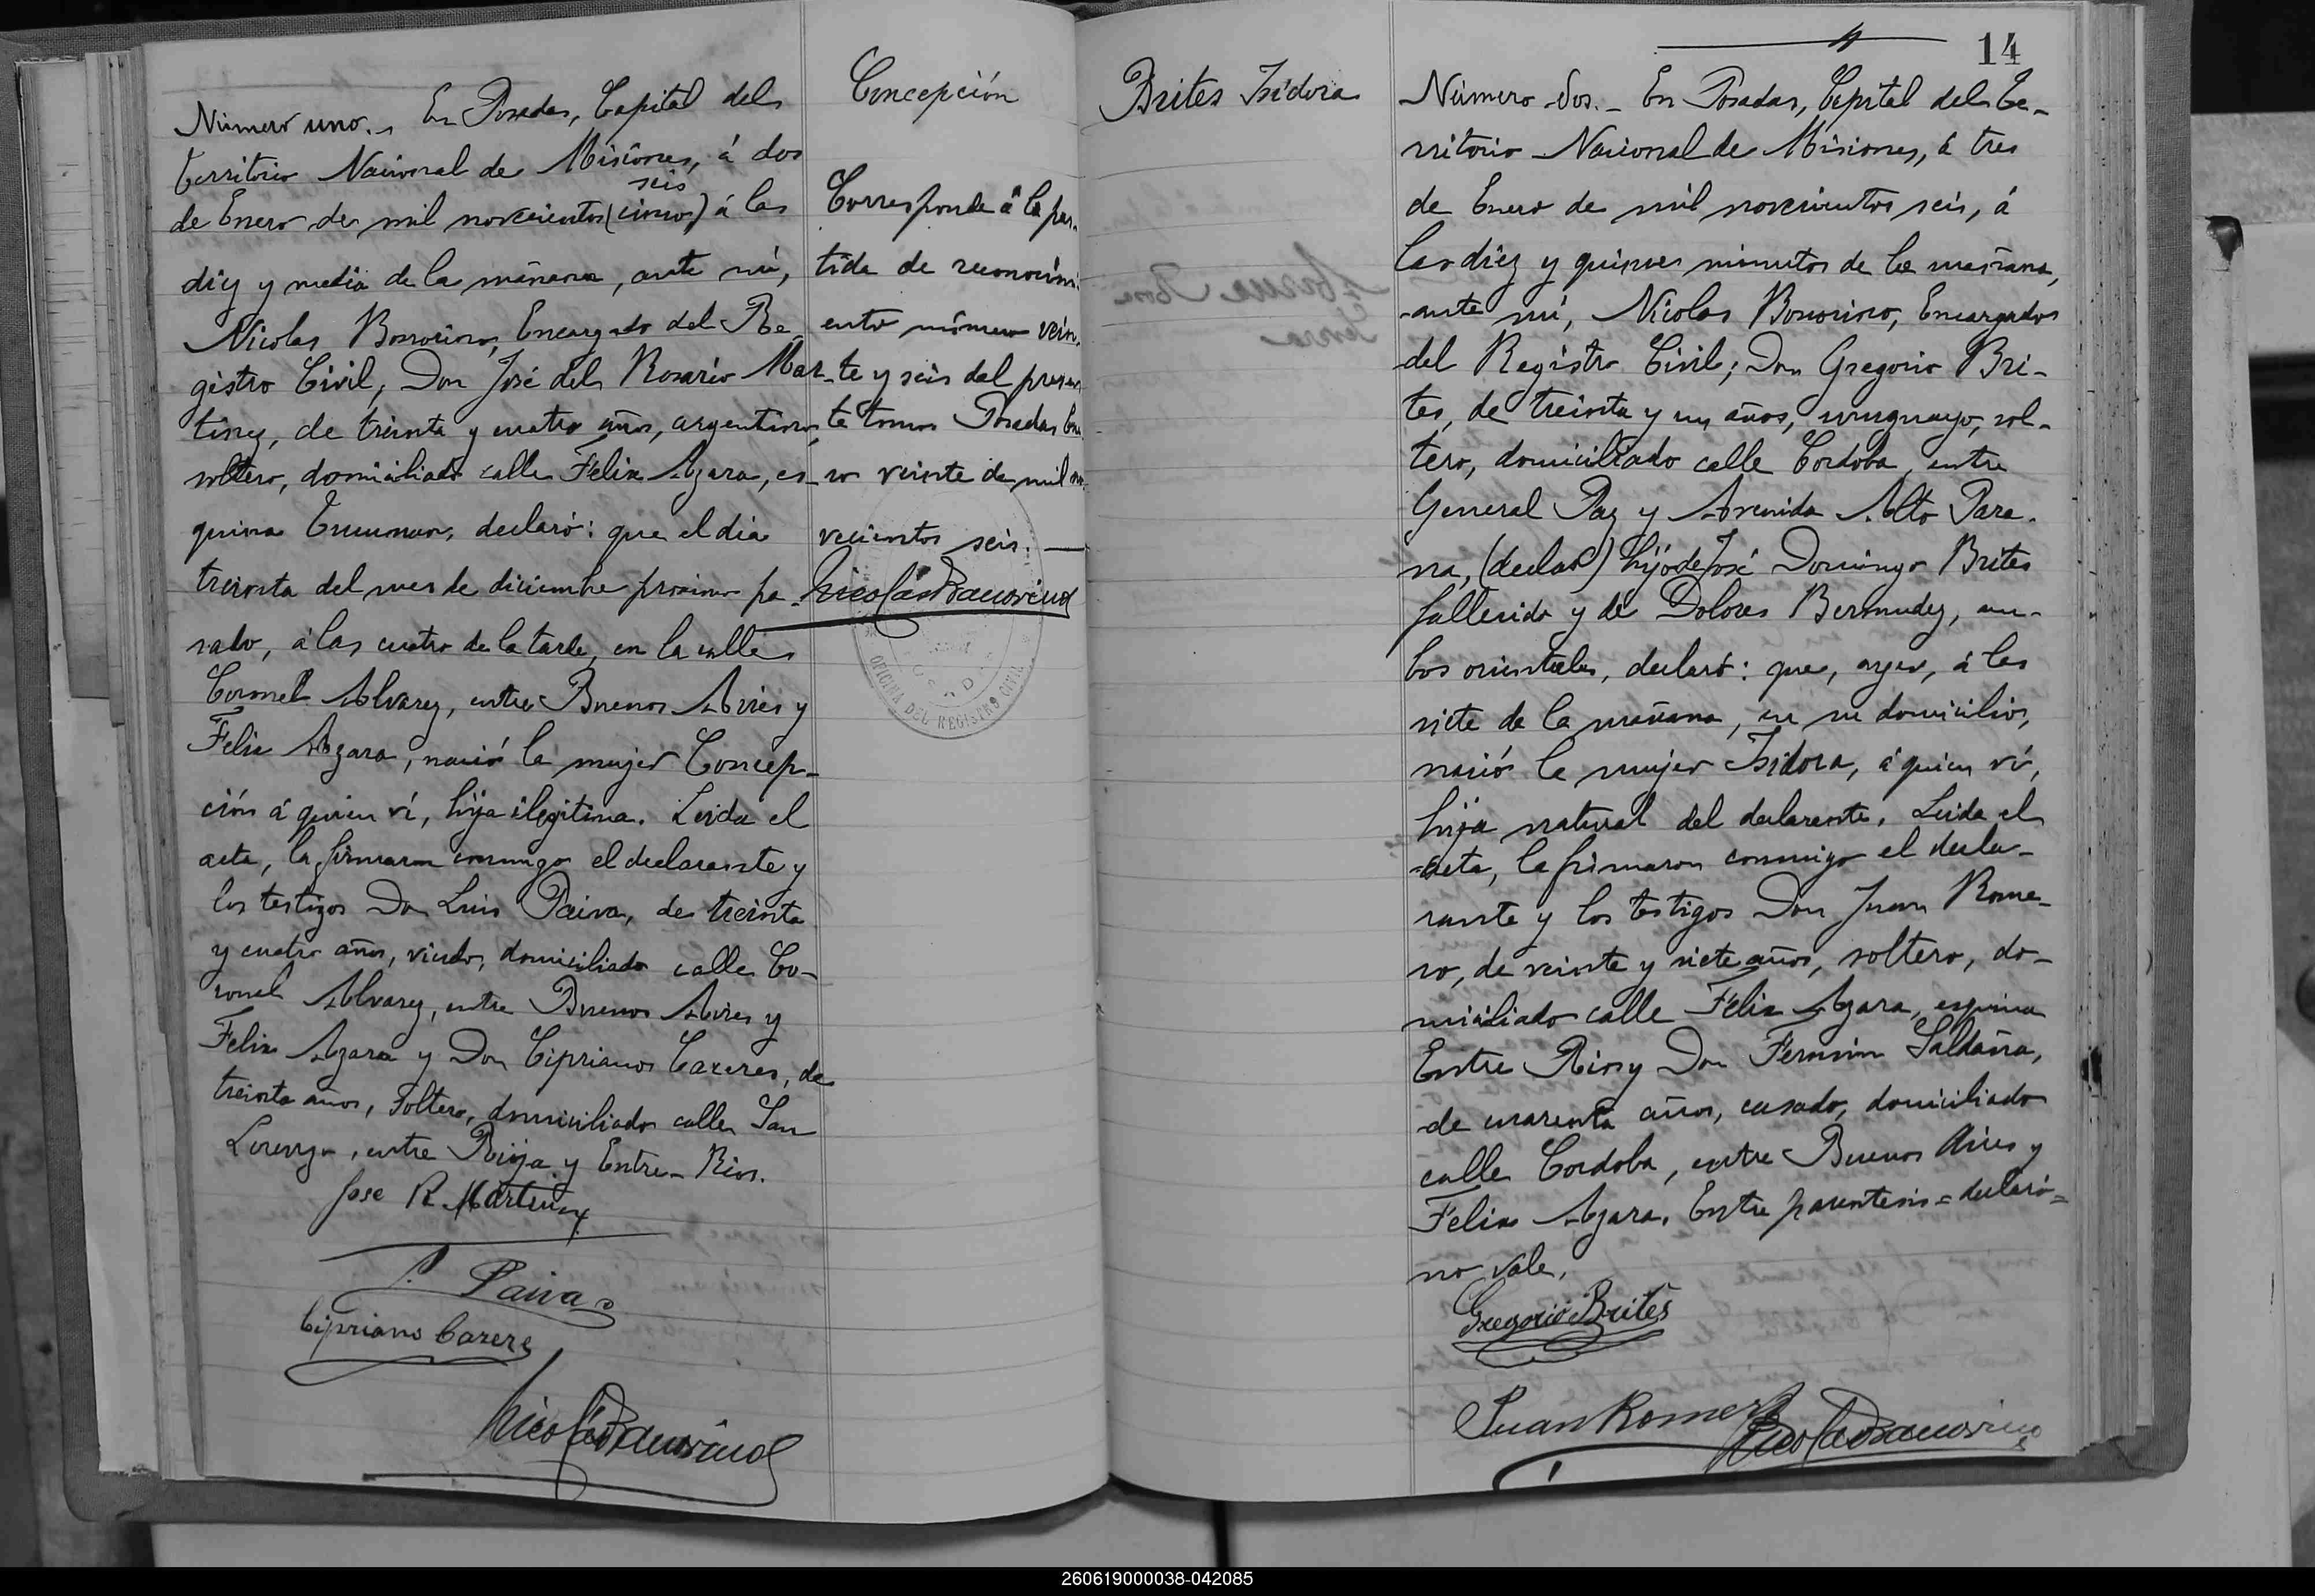 Número uno. En Posadas, Capital del
Territorio Nacional de Misiones, á dos
seis
de Enero de mil novecientos (cinco) á las
diez y media de la mañana, ante mí,
Nicolas Bonorino, Encargado del Re-
gistro Civil, Don José del Rosario Mar-
tinez, de treinta y cuatro años, argentino,
soltero, domiciliado calle Felix Azara, es-
quina Tucuman, declaró: que el dia
treinta del mes de diciembre proximo pa-
sado, á las cuatro de la tarde, en la calle
Coronel Alvarez, entre Buenos Aires y
Felix Azara, nació la mujer Concep-
ción á quien ví, hija ilegitima. Leida el
acta, la firmaron conmigo el declarante y
los testigos Don Luis Paiva, de treinta
y cuatro años, viudo, domiciliado calle Co-
ronel Alvarez, entre Buenos Aires y
Felix Azara y Don Cipriano Caceres, de
treinta años, soltero, domiciliado calle San
Lorenzo, entre Rioja y Entre-Rios.
Jose R. Martinez
L. Paiva
Cipriano Cazere
Nicolás Bonorino
Concepción
Corresponde á la par-
tida de reconocimi-
ento número vein-
te y seis del presen-
te tomo Posadas Ene-
ro veinte de mil no-
vecientos seis. —
Nicolás Bonorino
OFICINA DEL REGISTRO CIVIL
Brites Isidora
14
Número dos. - En Posadas, Capital del Te-
rritorio Nacional de Misiones, á tres
de Enero de mil novecientos seis, á
las diez y quince minutos de la mañana,
ante mí, Nicolas Bonorino, Encargado
del Registro Civil; Don Gregorio Bri-
tes, de treinta y un años, uruguayo, sol-
tero, domiciliado calle Cordoba, entre
General Paz y Avenida Alto Para-
na, (declaró) hijo de José Domingo Brites
fallecido y de Dolores Bermudez, am-
bos orientales, declaró: que, ayer, á las
siete de la mañana, en su domicilio,
nació la mujer Isidora, á quien ví,
hija natural del declarante. Leida el
acta, la firmaron conmigo el decla-
rante y los testigos Don Juan Rome-
ro, de veinte y siete años, soltero, do-
miciliado calle Felix Azara, esquina
Entre Rios y Don Fermin Saldaña,
de cuarenta años, casado, domiciliado
calle Cordoba, entre Buenos Aires y
Felix Azara. Entre parentesis = declaró =
no vale.
Gregorio Brites
Juan Romero
Nicolás Bonorino
260619000038-042085